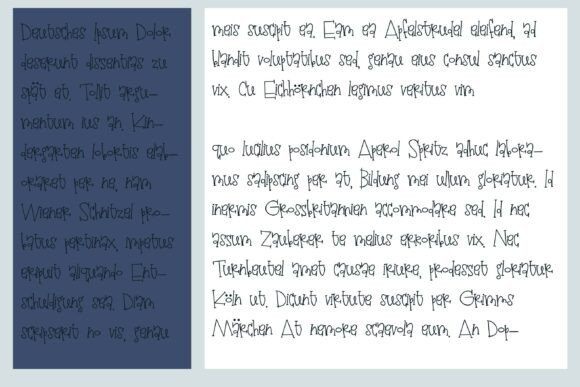 Deutsches Ipsum Dolor
deserunt dissentias zu
spät et, Tollit argu-
mentum ius an. Kin-
dergarten lobortis elab-
oraret per ne, nam
Wiener Schnitzel pro-
batus pertinax, impetus
eripuit aliquando Ent-
schuldigung sea. Diam
scripserit no vis, genau
meis suscipit ea. Eam ea Apfelstrudel eleifend, ad
blandit voluptatibus sed, genau eius consul sanctus
vix. Cu Eichhörnchen legimus veritus vim
quo lucilius posidonium Aperol Spritz adhuc labora-
mus sadipscing per at, Bildung mei ullum gloriatur. Id
inermis Grossbritannien accommodare sed. Id nec
assum Zauberer te melius erroribus vix. Nec
Turnbeutel amet causae iriure, prodesset gloriatur
Köln ut. Dicunt virtute suscipit per Grimms
Märchen At nemore scaevola eum. An Dop-